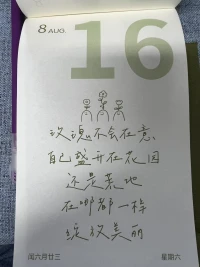 8 AUG
16
玫瑰不会在意
自己盛开在花园
还是荒地
在哪都一样
绽放美丽
闰六月廿三
星期六